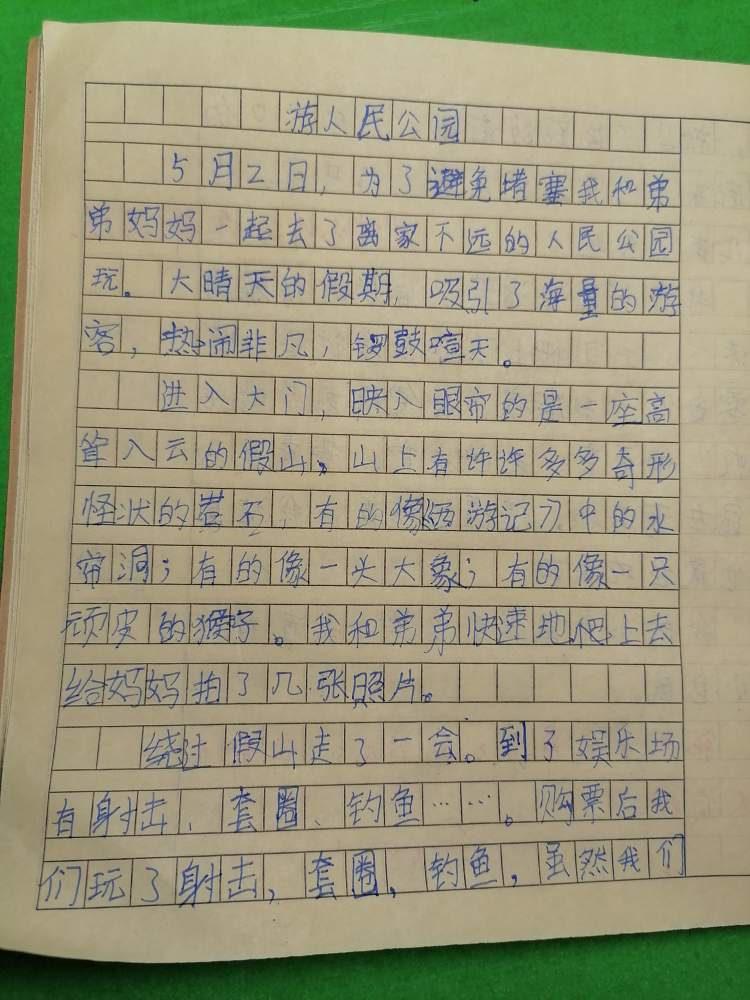 游人民公园
5月2日，为了避免堵塞我和弟
弟妈妈一起去了离家不远的人民公园
玩。大晴天的假期，吸引了海量的游
客，热闹非凡，锣鼓喧天。
进入大门，映入眼帘的是一座高
耸入云的假山。山上有许许多多奇形
怪状的岩石，有的像《西游记》中的水
帘洞；有的像一头大象；有的像一只
顽皮的猴子。我和弟弟快速地爬上去
给妈妈拍了几张照片。
绕过假山走了一会。到了娱乐场
有射击、套圈、钓鱼……。购票后我
们玩了射击，套圈，钓鱼，虽然我们